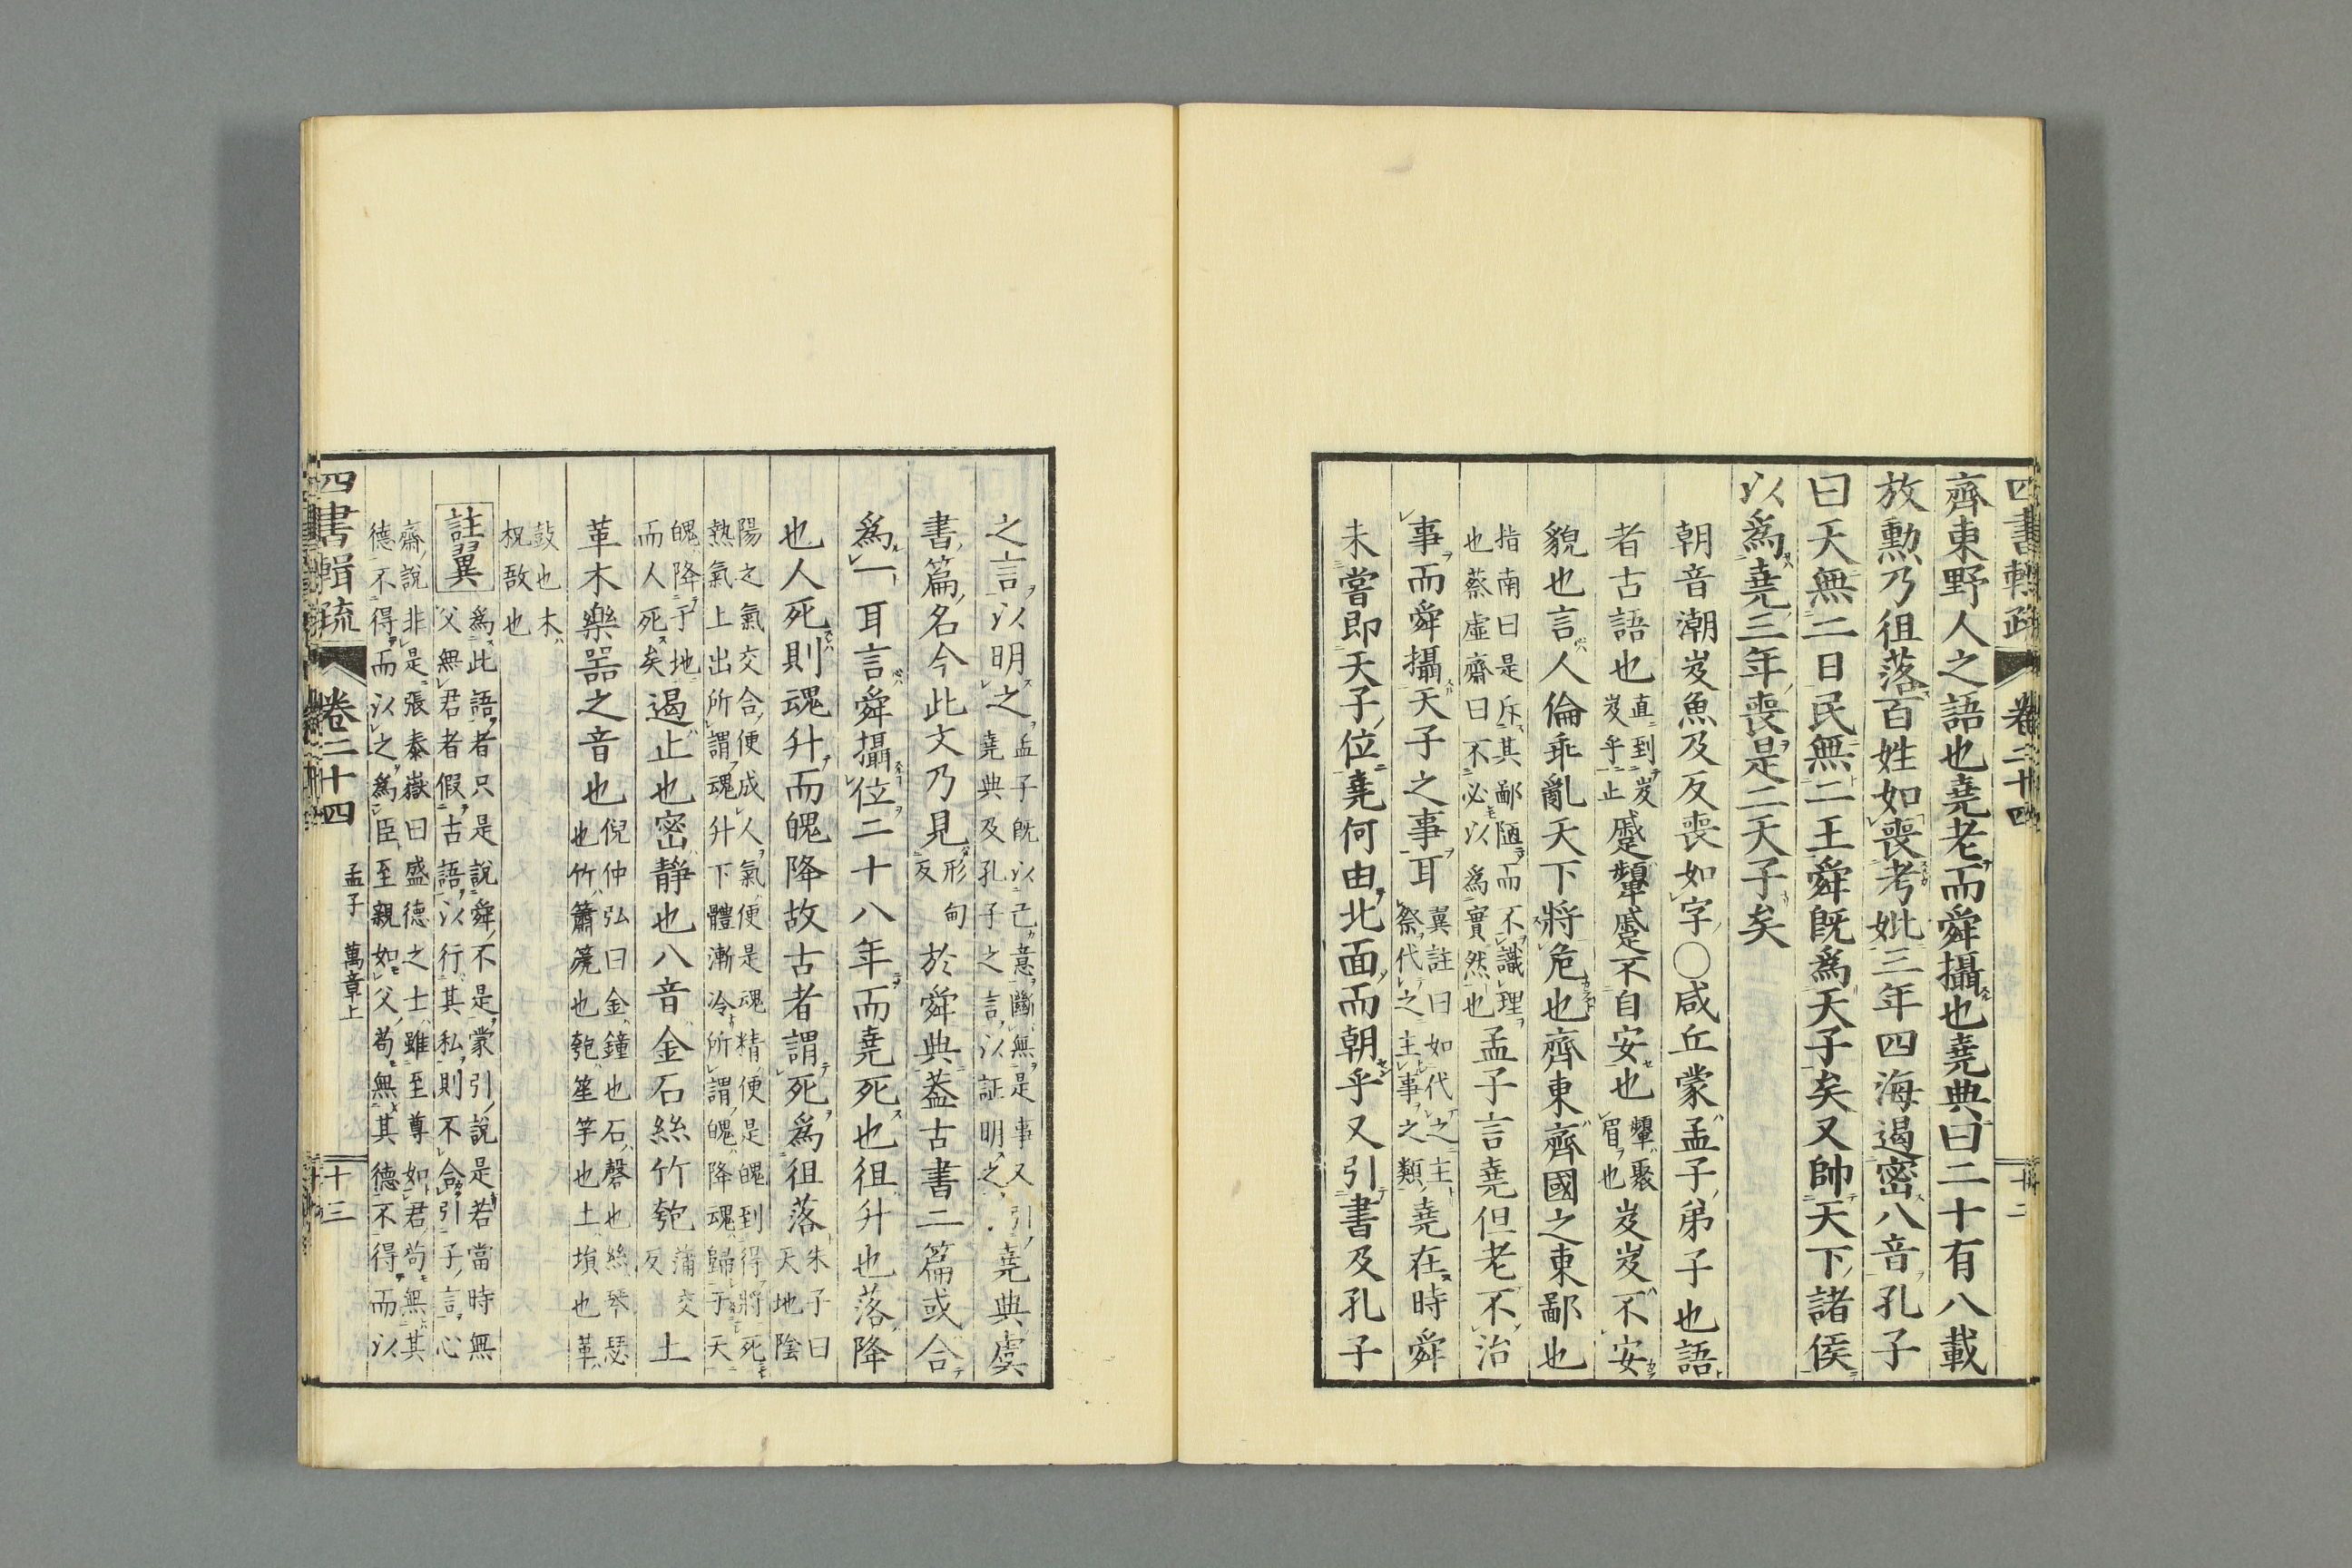 四書輯疏 卷二十四 十二
齊東野人之語也堯老而舜攝也堯典曰二十有八載
放勲乃徂落百姓如喪考妣三年四海遏密八音孔子
曰天無二日民無二王舜既爲天子矣又帥天下諸侯
以爲堯三年喪是二天子矣
朝音潮岌魚及反喪如字○咸丘蒙孟子弟子也語
者古語也直到岌岌乎止蹙顰蹙不自安也顰聚眉也岌岌不安
貌也言人倫乖亂天下將危也齊東齊國之東鄙也
指南曰是斥其鄙陋而不識理也蔡虛齋曰不必以爲實然也孟子言堯但老不治
事而舜攝天子之事耳翼註曰如代之主祭代之主事之類堯在時舜
未嘗即天子位堯何由北面而朝乎又引書及孔子
之言以明之孟子既以己意斷無是事又引堯典及孔子之言以証明之堯典虞
書篇名今此文乃見形甸反於舜典蓋古書二篇或合
爲一耳言舜攝位二十八年而堯死也徂升也落降
也人死則魂升而魄降故古者謂死爲徂落朱子曰天地陰
陽之氣交合便成人氣便是魂精便是魄到得將死熱氣上出所謂魂升下體漸冷所謂魄降魂歸于天
魄降于地而人死矣遏止也密靜也八音金石絲竹匏蒲交反土
革木樂器之音也倪仲弘曰金鐘也石磬也絲琴瑟也竹簫篪也匏笙竽也土塤也革
鼓也木柷敔也
註翼 爲此語者只是說舜不是蒙引說是若當時無父無君者假古語以行其私則不合引孔子言心
齋說非是張泰嶽曰盛德之士雖至尊如君苟無其德不得而以之爲臣至親如父苟無其德不得而以
四書輯疏 卷二十四 孟子 萬章上 十三